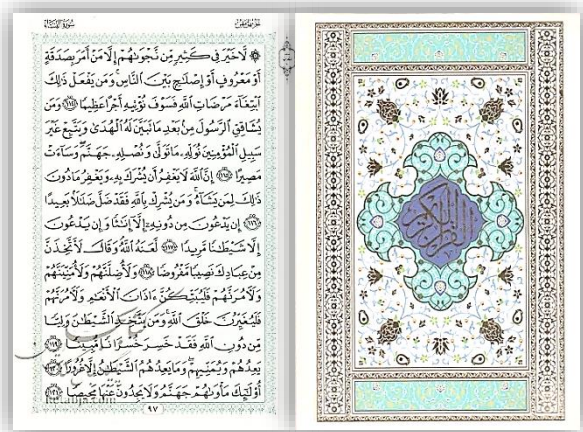 سورة النساء
لَّا خَيْرَ فِي كَثِيرٍ مِّن نَّجْوَىٰهُمْ إِلَّا مَنْ أَمَرَ بِصَدَقَةٍ
أَوْ مَعْرُوفٍ أَوْ إِصْلَٰحٍ بَيْنَ النَّاسِ وَمَن يَفْعَلْ ذَٰلِكَ
ابْتِغَآءَ مَرْضَاتِ اللَّهِ فَسَوْفَ نُؤْتِيهِ أَجْرًا عَظِيمًا ﴿١١٤﴾ وَمَن
يُشَاقِقِ الرَّسُولَ مِن بَعْدِ مَا تَبَيَّنَ لَهُ الْهُدَىٰ وَيَتَّبِعْ غَيْرَ
سَبِيلِ الْمُؤْمِنِينَ نُوَلِّهِ مَا تَوَلَّىٰ وَنُصْلِهِ جَهَنَّمَ وَسَآءَتْ
مَصِيرًا ﴿١١٥﴾ إِنَّ اللَّهَ لَا يَغْفِرُ أَن يُشْرَكَ بِهِ وَيَغْفِرُ مَا دُونَ
ذَٰلِكَ لِمَن يَشَآءُ وَمَن يُشْرِكْ بِاللَّهِ فَقَدْ ضَلَّ ضَلَٰلًا بَعِيدًا
﴿١١٦﴾ إِن يَدْعُونَ مِن دُونِهِ إِلَّا إِنَٰثًا وَإِن يَدْعُونَ
إِلَّا شَيْطَٰنًا مَّرِيدًا ﴿١١٧﴾ لَّعَنَهُ اللَّهُ وَقَالَ لَأَتَّخِذَنَّ
مِنْ عِبَادِكَ نَصِيبًا مَّفْرُوضًا ﴿١١٨﴾ وَلَأُضِلَّنَّهُمْ وَلَأُمَنِّيَنَّهُمْ
وَلَآمُرَنَّهُمْ فَلَيُبَتِّكُنَّ ءَاذَانَ الْأَنْعَٰمِ وَلَآمُرَنَّهُمْ
فَلَيُغَيِّرُنَّ خَلْقَ اللَّهِ وَمَن يَتَّخِذِ الشَّيْطَٰنَ وَلِيًّا
مِّن دُونِ اللَّهِ فَقَدْ خَسِرَ خُسْرَانًا مُّبِينًا ﴿١١٩﴾
يَعِدُهُمْ وَيُمَنِّيهِمْ وَمَا يَعِدُهُمُ الشَّيْطَٰنُ إِلَّا غُرُورًا ﴿١٢٠﴾
أُو۟لَٰٓئِكَ مَأْوَىٰهُمْ جَهَنَّمُ وَلَا يَجِدُونَ عَنْهَا مَحِيصًا ﴿١٢١﴾
٩٧
القرآن الكريم